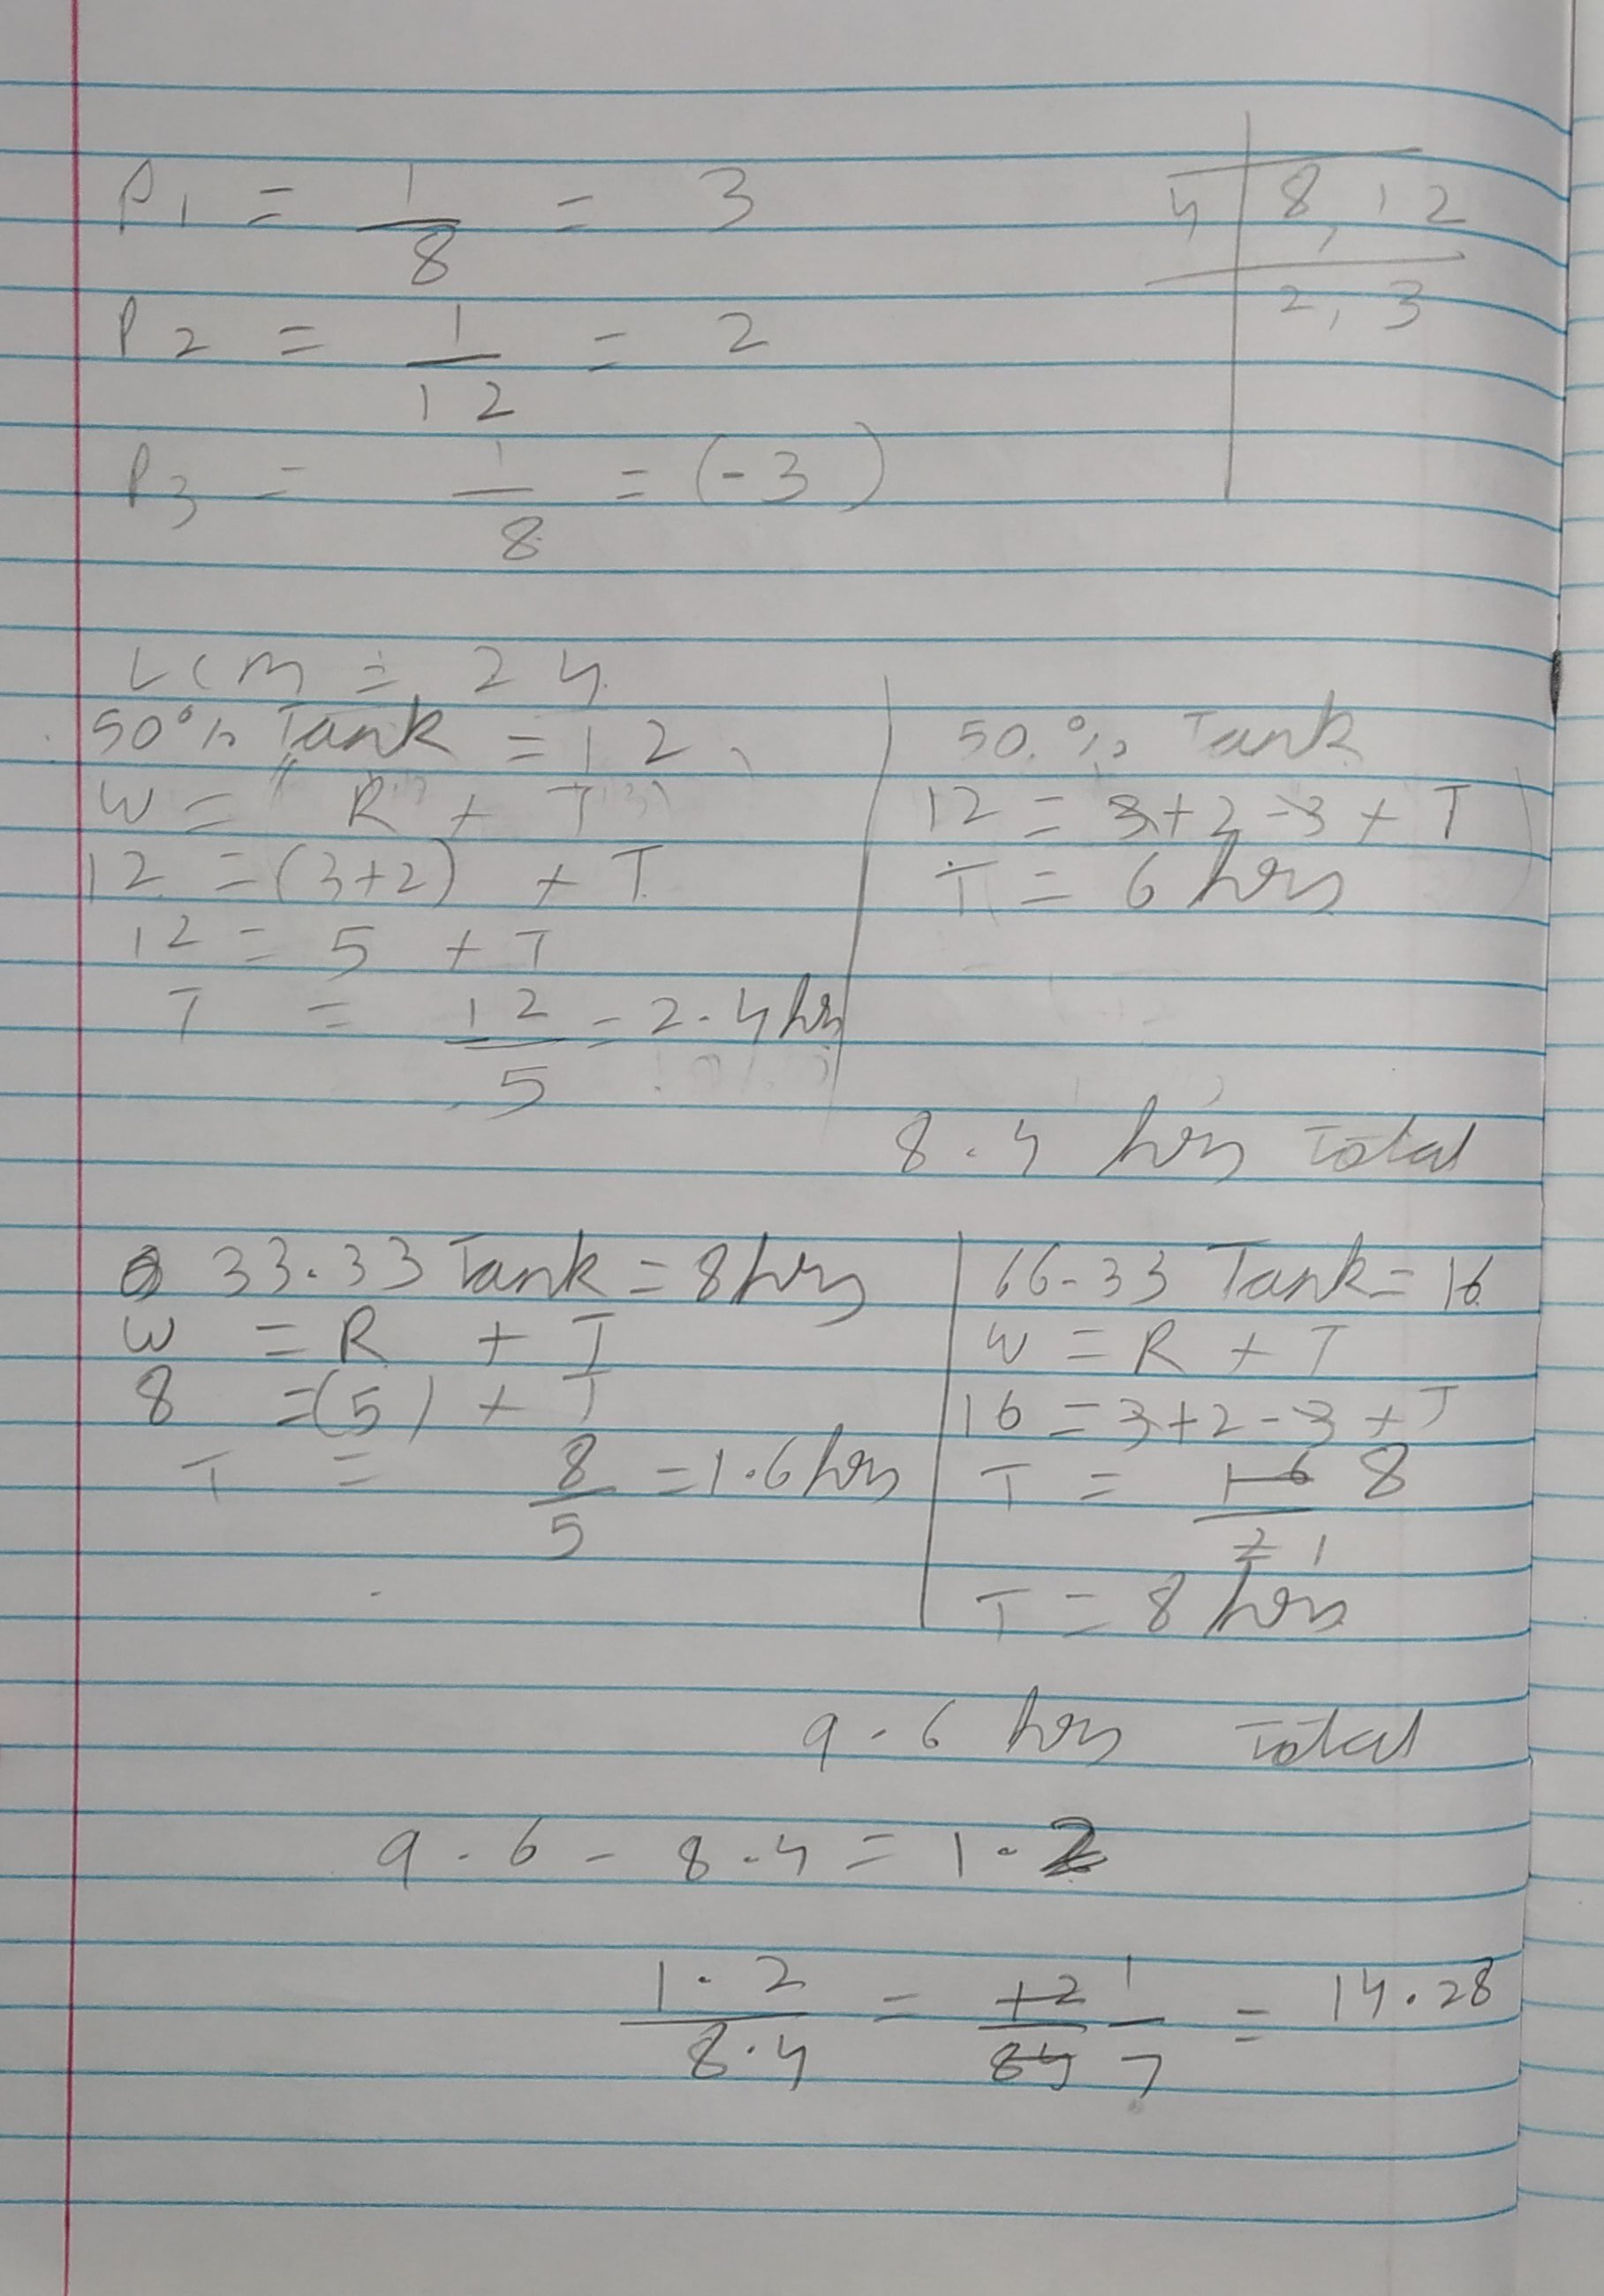 P1 = 1/8 = 3
4 | 8, 12
2, 3
P2 = 1/12 = 2
P3 = 1/8 = (-3)
LCM = 24
50% Tank = 12
W = R + T
12 = (3+2) + T
12 = 5 + T
T = 12/5 = 2.4 hrs
50.% Tank
12 = 3+2-3 + T
T = 6 hrs
8.4 hrs Total
33.33 Tank = 8 hrs
W = R + T
8 = (5) + T
T = 8/5 = 1.6 hrs
66-33 Tank = 16
W = R + T
16 = 3+2-3 + T
T = 16/2 8/1
T = 8 hrs
9.6 hrs Total
9.6 - 8.4 = 1.2
1.2/8.4 = 12/84 1/7 = 14.28